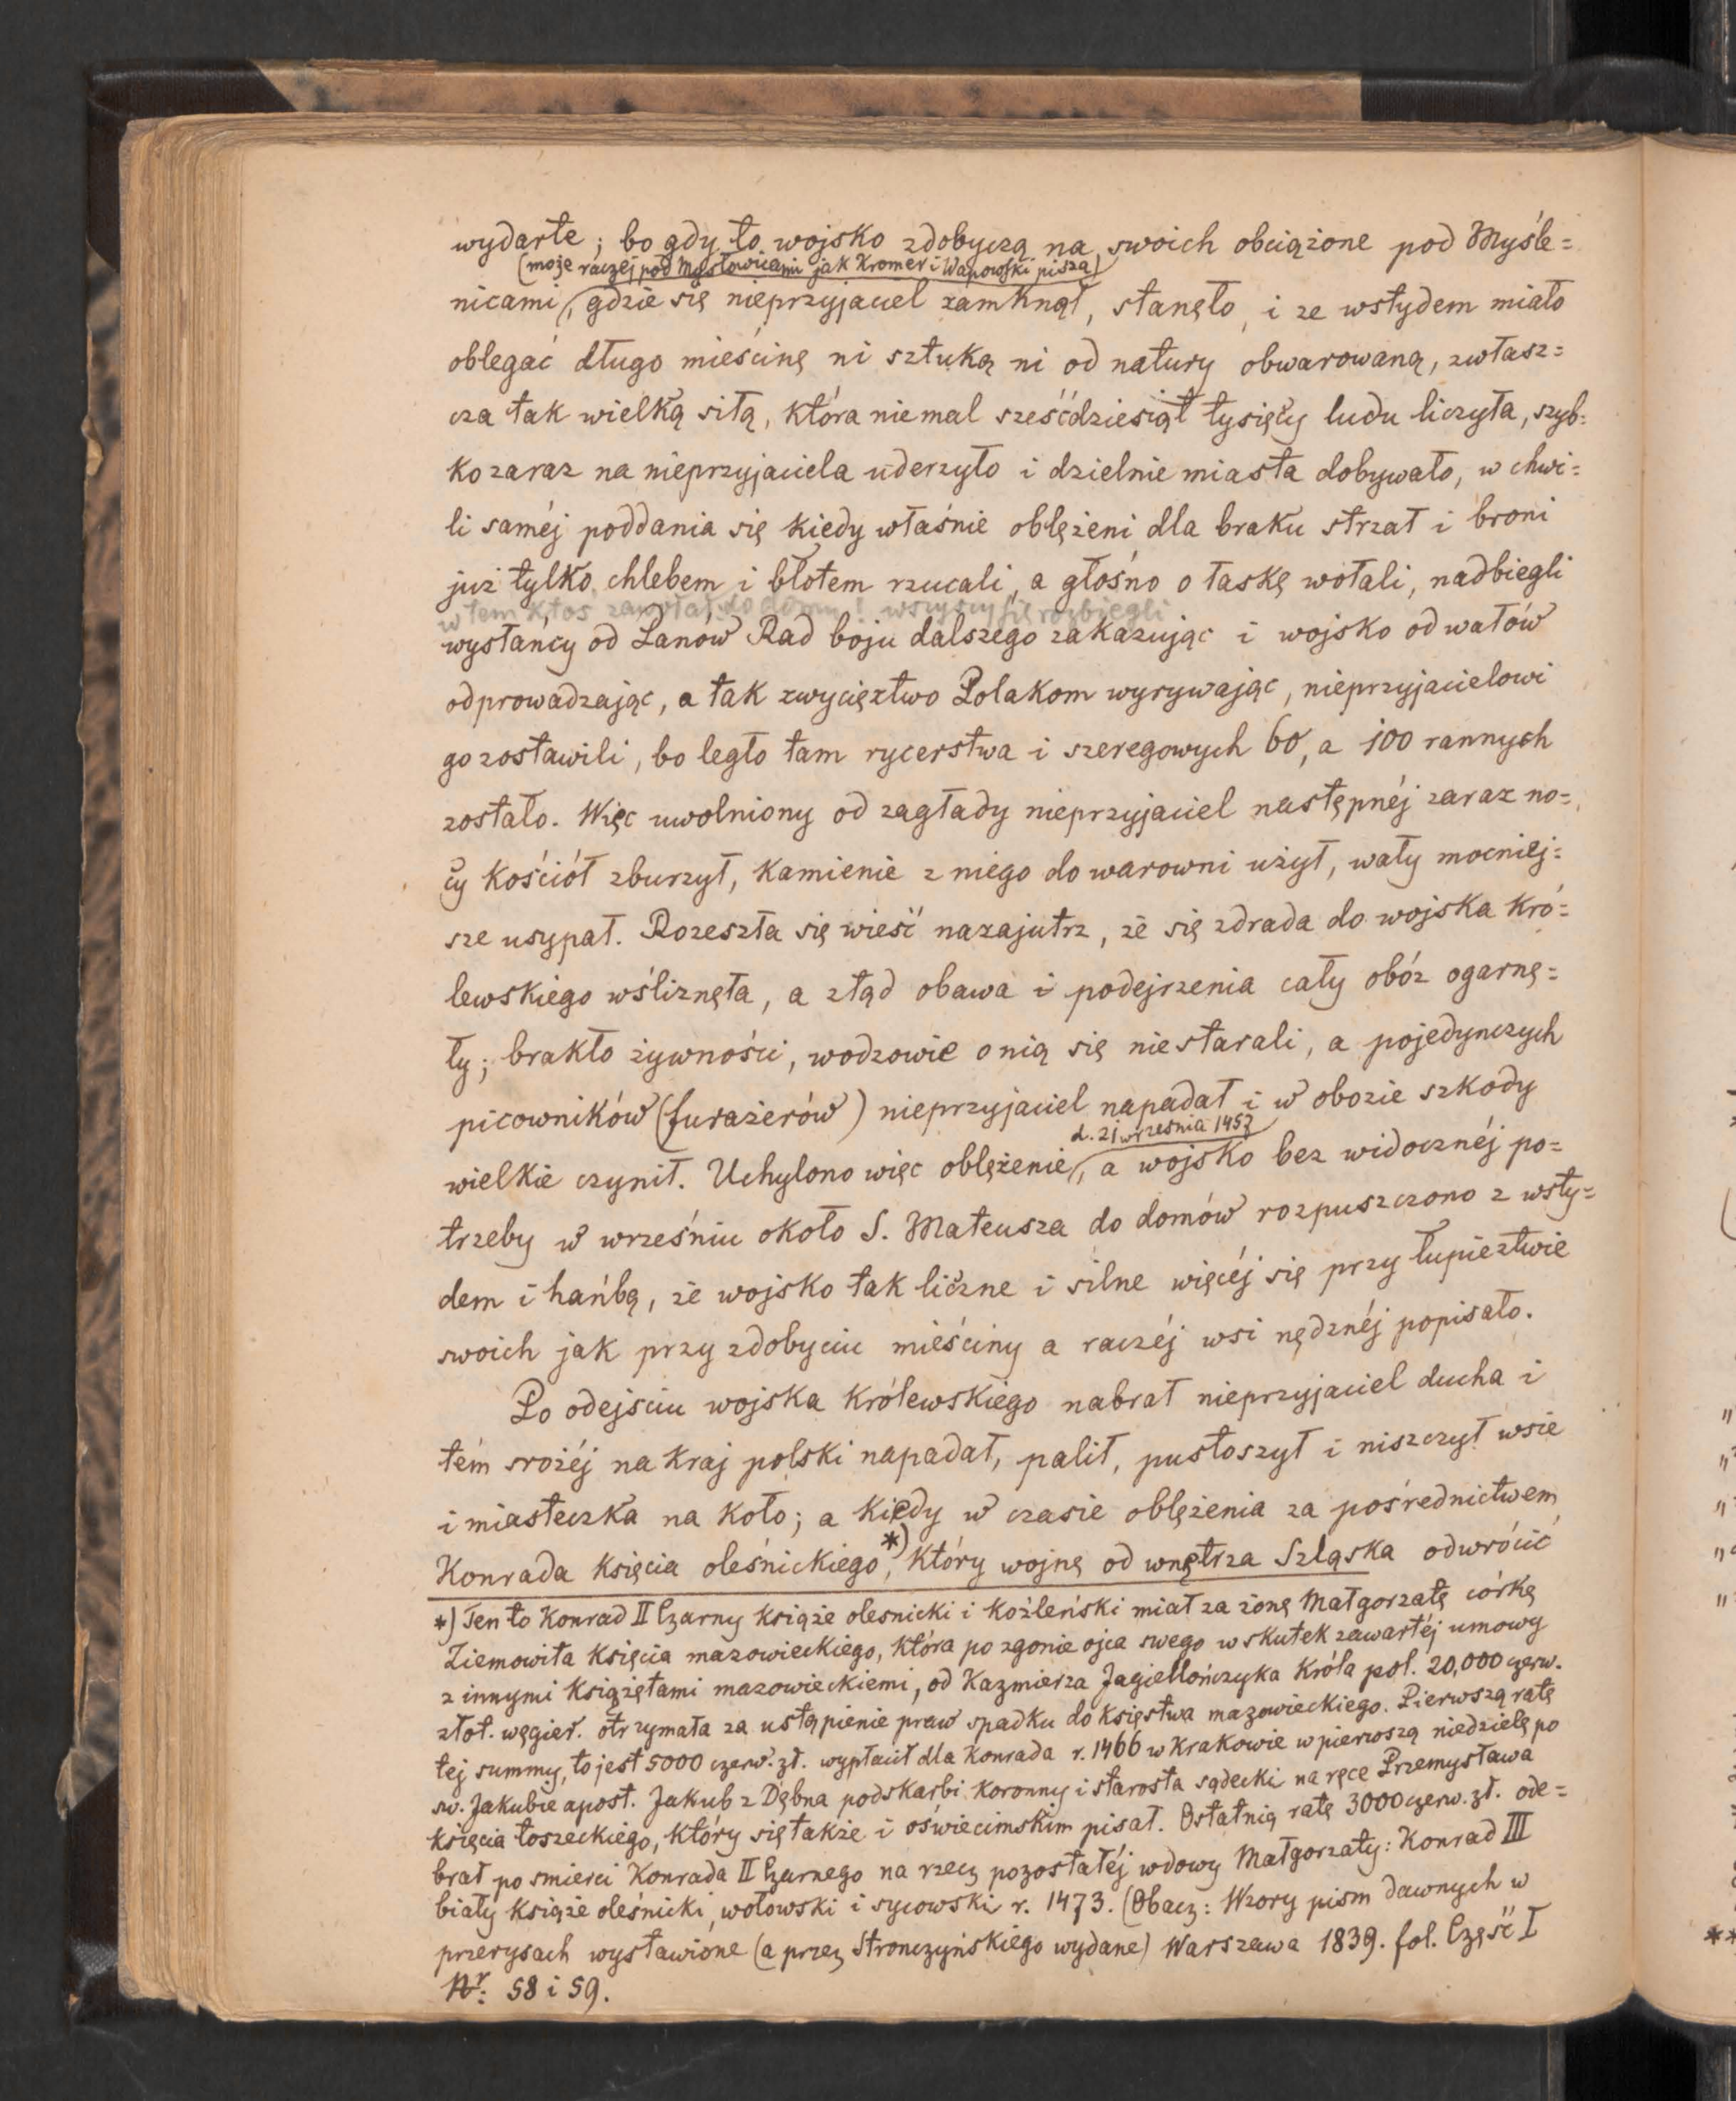 wydarte; bo gdy to wojsko zdobyczą na swoich obciążone pod Myśle=
(może raczej pod Mysłowicami jak Kromer i Wapowski piszą)
nicami, gdzie się nieprzyjaciel zamknął, stanęło, i ze wstydem miało
oblegać długo mieścinę ni sztuką ni od natury obwarowaną, zwłasz=
cza tak wielką siłą, która niemal sześćdziesiąt tysięcy ludu liczyła, szyb=
ko zaraz na nieprzyjaciela uderzyło i dzielnie miasta dobywało, w chwi=
li saméj poddania się kiedy właśnie oblężeni dla braku strzał i broni
już tylko chlebem i błotem rzucali, a głośno o łaskę wołali, nadbiegli
w tem ktos zawołał do domu! wszyscy się rozbiegli
wysłańcy od Panów Rad boju dalszego zakazując i wojsko od wałów
odprowadzając, a tak zwycięztwo Polakom wyrywając, nieprzyjacielowi
go zostawili, bo legło tam rycerstwa i szeregowych 60, a 100 rannych
zostało. Więc uwolniony od zagłady nieprzyjaciel następnéj zaraz no=
cy kościół zburzył, kamienie z niego do warowni użył, wały mocniej=
sze usypał. Rozeszła się wieść nazajutrz, że się zdrada do wojska kró=
lewskiego wśliznęła, a ztąd obawa i podejrzenia cały obóz ogarnę=
ły; brakło żywności, wodzowie o nią się niestarali, a pojedynczych
picowników (furażerów) nieprzyjaciel napadał i w obozie szkody
d. 21 września 1457
wielkie czynił. Uchylono więc oblężenie, a wojsko bez widocznéj po=
trzeby w wrześniu około S. Mateusza do domów rozpuszczono z wsty=
dem i hańbą, że wojsko tak liczne i silne więcéj się przy łupieztwie
swoich jak przy zdobyciu mieściny a raczéj wsi nędznéj popisało.
Po odejściu wojska królewskiego nabrał nieprzyjaciel ducha i
tém srożéj na kraj polski napadał, palił, pustoszył i niszczył wsie
i miasteczka na koło; a kiedy w czasie oblężenia za pośrednictwem
Konrada księcia oleśnickiego*), który wojnę od wnętrza Szląska odwrócić
*) Ten to Konrad II Czarny książe olesnicki i koźleński miał za żonę Małgorzatę córkę
Ziemowita księcia mazowieckiego, która po zgonie ojca swego w skutek zawartéj umowy
z innymi książętami mazowieckiemi, od Kazmierza Jagiellończyka Króla pol. 20,000 czerw.
złot. węgier. otrzymała za ustąpienie praw spadku do księstwa mazowieckiego. Pierwszą ratę
tej summy, to jest 5000 czerw. zł. wypłacił dla Konrada r. 1466 w Krakowie w pierwszą niedzielę po
sw. Jakubie apost. Jakub z Dębna podskarbi Koronny i starosta sądecki na ręce Przemysława
księcia toszeckiego, który się także i oświecimskim pisał. Ostatnią ratę 3000 czerw. zł. ode=
brał po smierci Konrada II Czarnego na rzecz pozostałéj wdowy Małgorzaty: Konrad III
biały książe oleśnicki, wołowski i sycowski r. 1473. (Obacz: Wzory pism dawnych w
przerysach wystawione (a przez Stronczyńskiego wydane) Warszawa 1839. fol. Część I
Nr: 58 i 59.